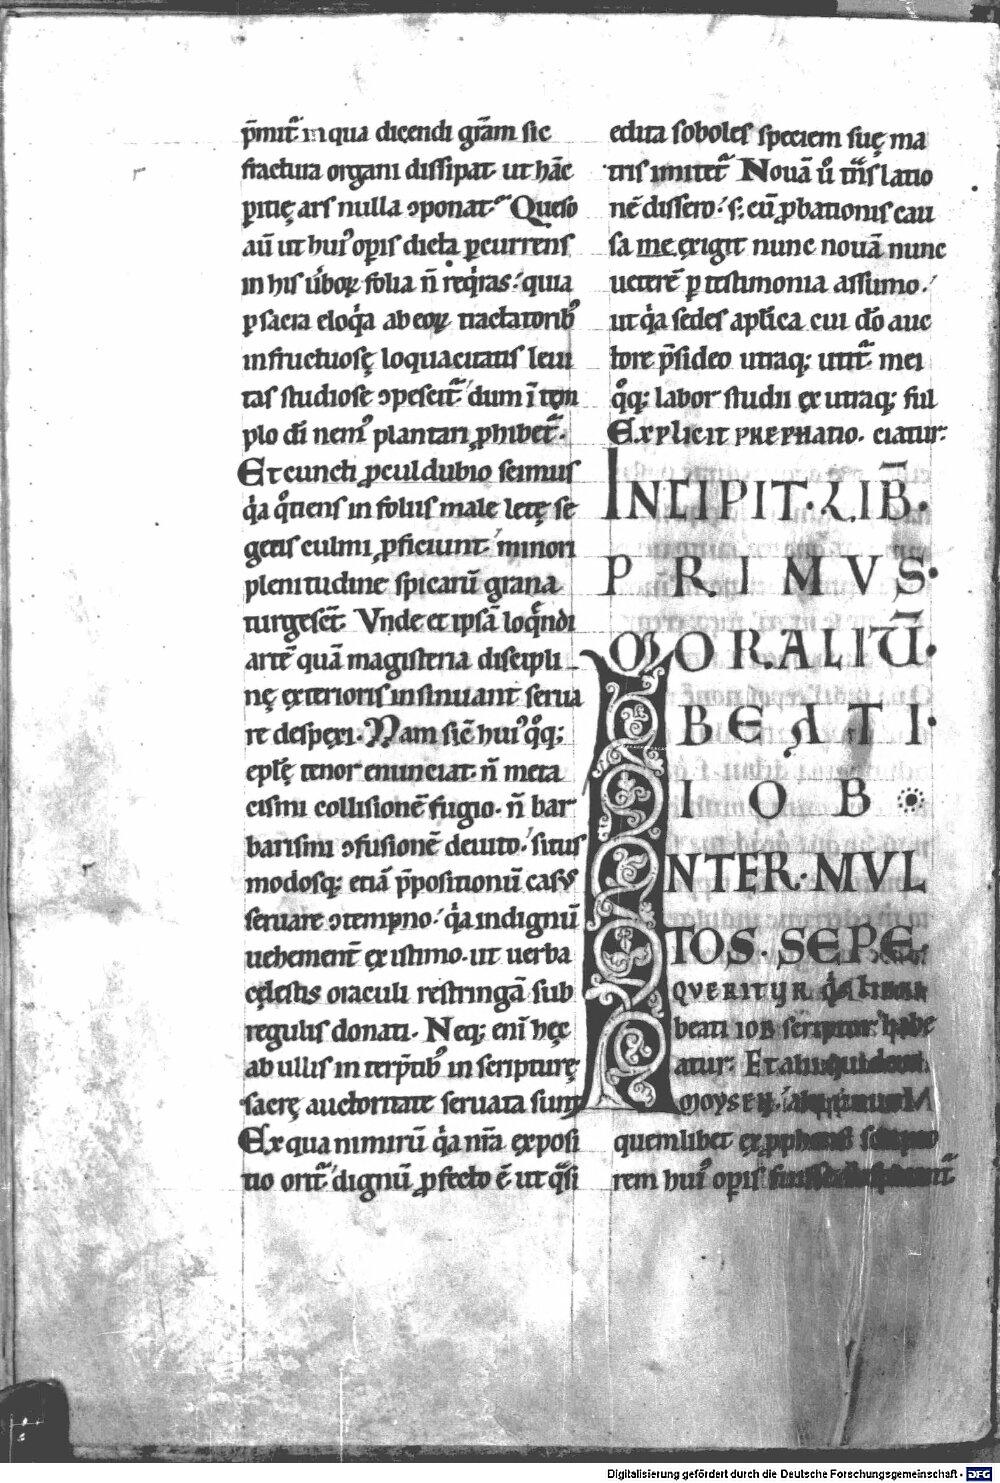 p̄mitᷓ in qua dicendi grãm sic
fractura organi dissipat ut hãc
ꝑitię ars nulla ↄponat· Queso
aũ ut huiꝰ oꝑis dicta ꝑcurrens
in his ũboꝝ folia ñ req̇ras· quia
ꝑ sacra eloq̇a ab eoꝝ tractatoribꝰ
infructuosę loquacitatis leui
tas studiose ↄpescitᷓ dum ĩ tem
plo dī nemꝰ plantari ꝓhibetᷓ·
Et cuncti ꝓculdubio scimus
q̇a q̊tiens in foliis male letę se
getis culmi ꝓficiunt· minori
plenitudine spicarũ grana
turgesct̄· Vnde et ipsã loq̄ndi
artē quã magisteria discipli
nę exterioris insinuant serua
re despęxi. Nam sic̄ huiꝰ q̊q;
epl̄ę tenor enunciat· ñ meta
cismi collisionē fugio· ñ bar
barismi ↄfusionē deuito· situs
modosq; etiã p̄positionũ casꝰ
seruare ↄtempno· q̇a indignũ
uehement̄ existimo· ut uerba
cęlestis oraculi restringã sub
regulis donati· Neq; enī hęc
ab ullis interp̄tibꝰ in scripturę
sacrę auctoritate seruata sunt
Ex qua nimirũ q̇a nr̄a exposi
tio oritᷓ dignũ ꝓfecto ē ut qᷓsi
edita soboles speciem suę ma
tris imitetᷓ Nouã ů trᷓslatio
nē dissero· s; cũ ꝓbationis cau
sa me exigit nunc nouã nunc
ueterē ꝑ testimonia assumo·
ut q̇a sedes aplīca cui dō auc
tore p̄sideo utraq; utitᷓ mei
q̊q; labor studii ex utraq; ful
Explicit prephatio. ciatur·
INCIPIT· LIB̄·
PRIMVS·
MORALIŪ·
BEATI·
IOB
INTER· MVL
TOS· SEPE
QVERITUR q̇s libri
beati IOB scriptor habe
atur· Et alii quidem
MOYSEN·
quemlibet ex ꝓphetis scripto
rem huiꝰ oꝑis
Digitalisierung gefördert durch die Deutsche Forschungsgemeinschaft - DFG